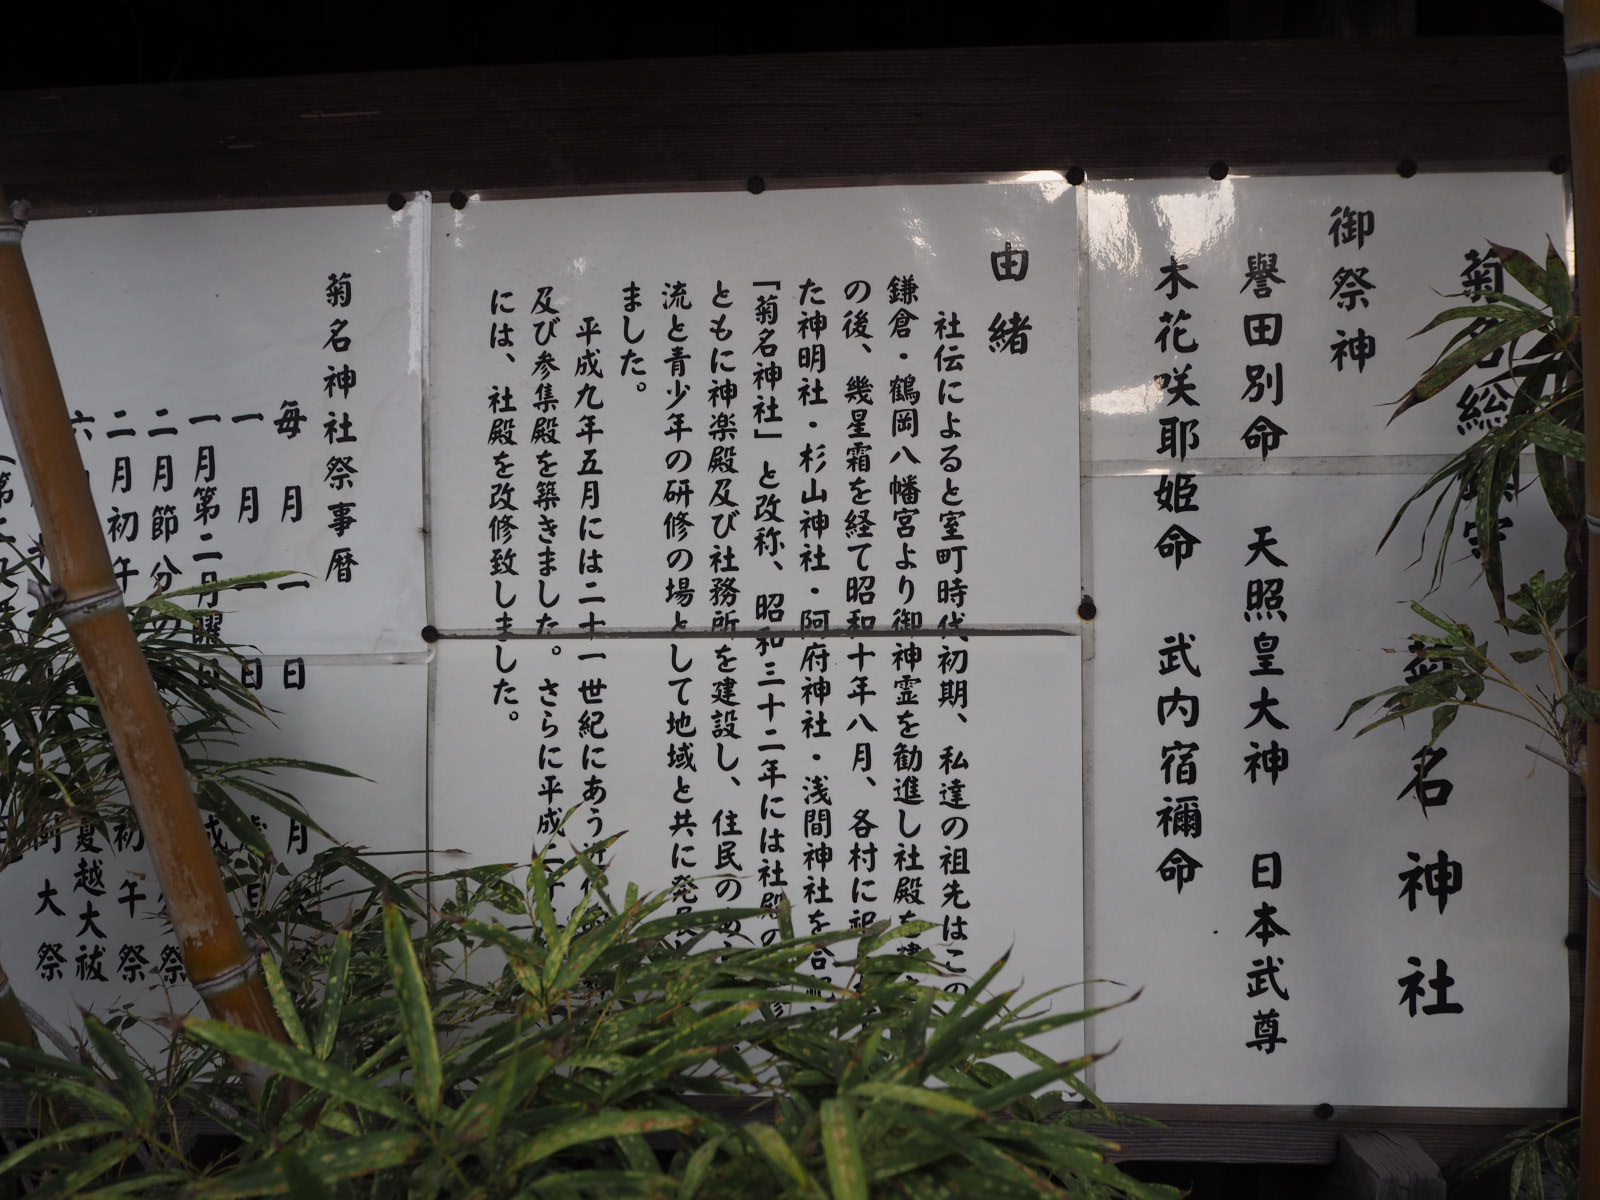 菊名総鎮守
菊名神社
御祭神
譽田別命 天照皇大神 日本武尊
木花咲耶姫命 武内宿禰命
由緒
社伝によると室町時代初期、私達の祖先はこの
鎌倉・鶴岡八幡宮より御神霊を勧進し社殿を
の後、幾星霜を経て昭和十年八月、各村に祀
た神明社・杉山神社・阿府神社・浅間神社を合祀
「菊名神社」と改称、昭和三十二年には社殿の
ともに神楽殿及び社務所を建設し、住民の
流と青少年の研修の場として地域と共に発展
ました。
平成九年五月には二十一世紀にあう近代
及び参集殿を築きました。さらに平成二十
には、社殿を改修致しました。
菊名神社祭事暦
毎月一日 月
一月一日
一月第二月曜日 成
二月節分の 祭
二月初午 初午祭
六月 夏越大祓
例大祭
(第